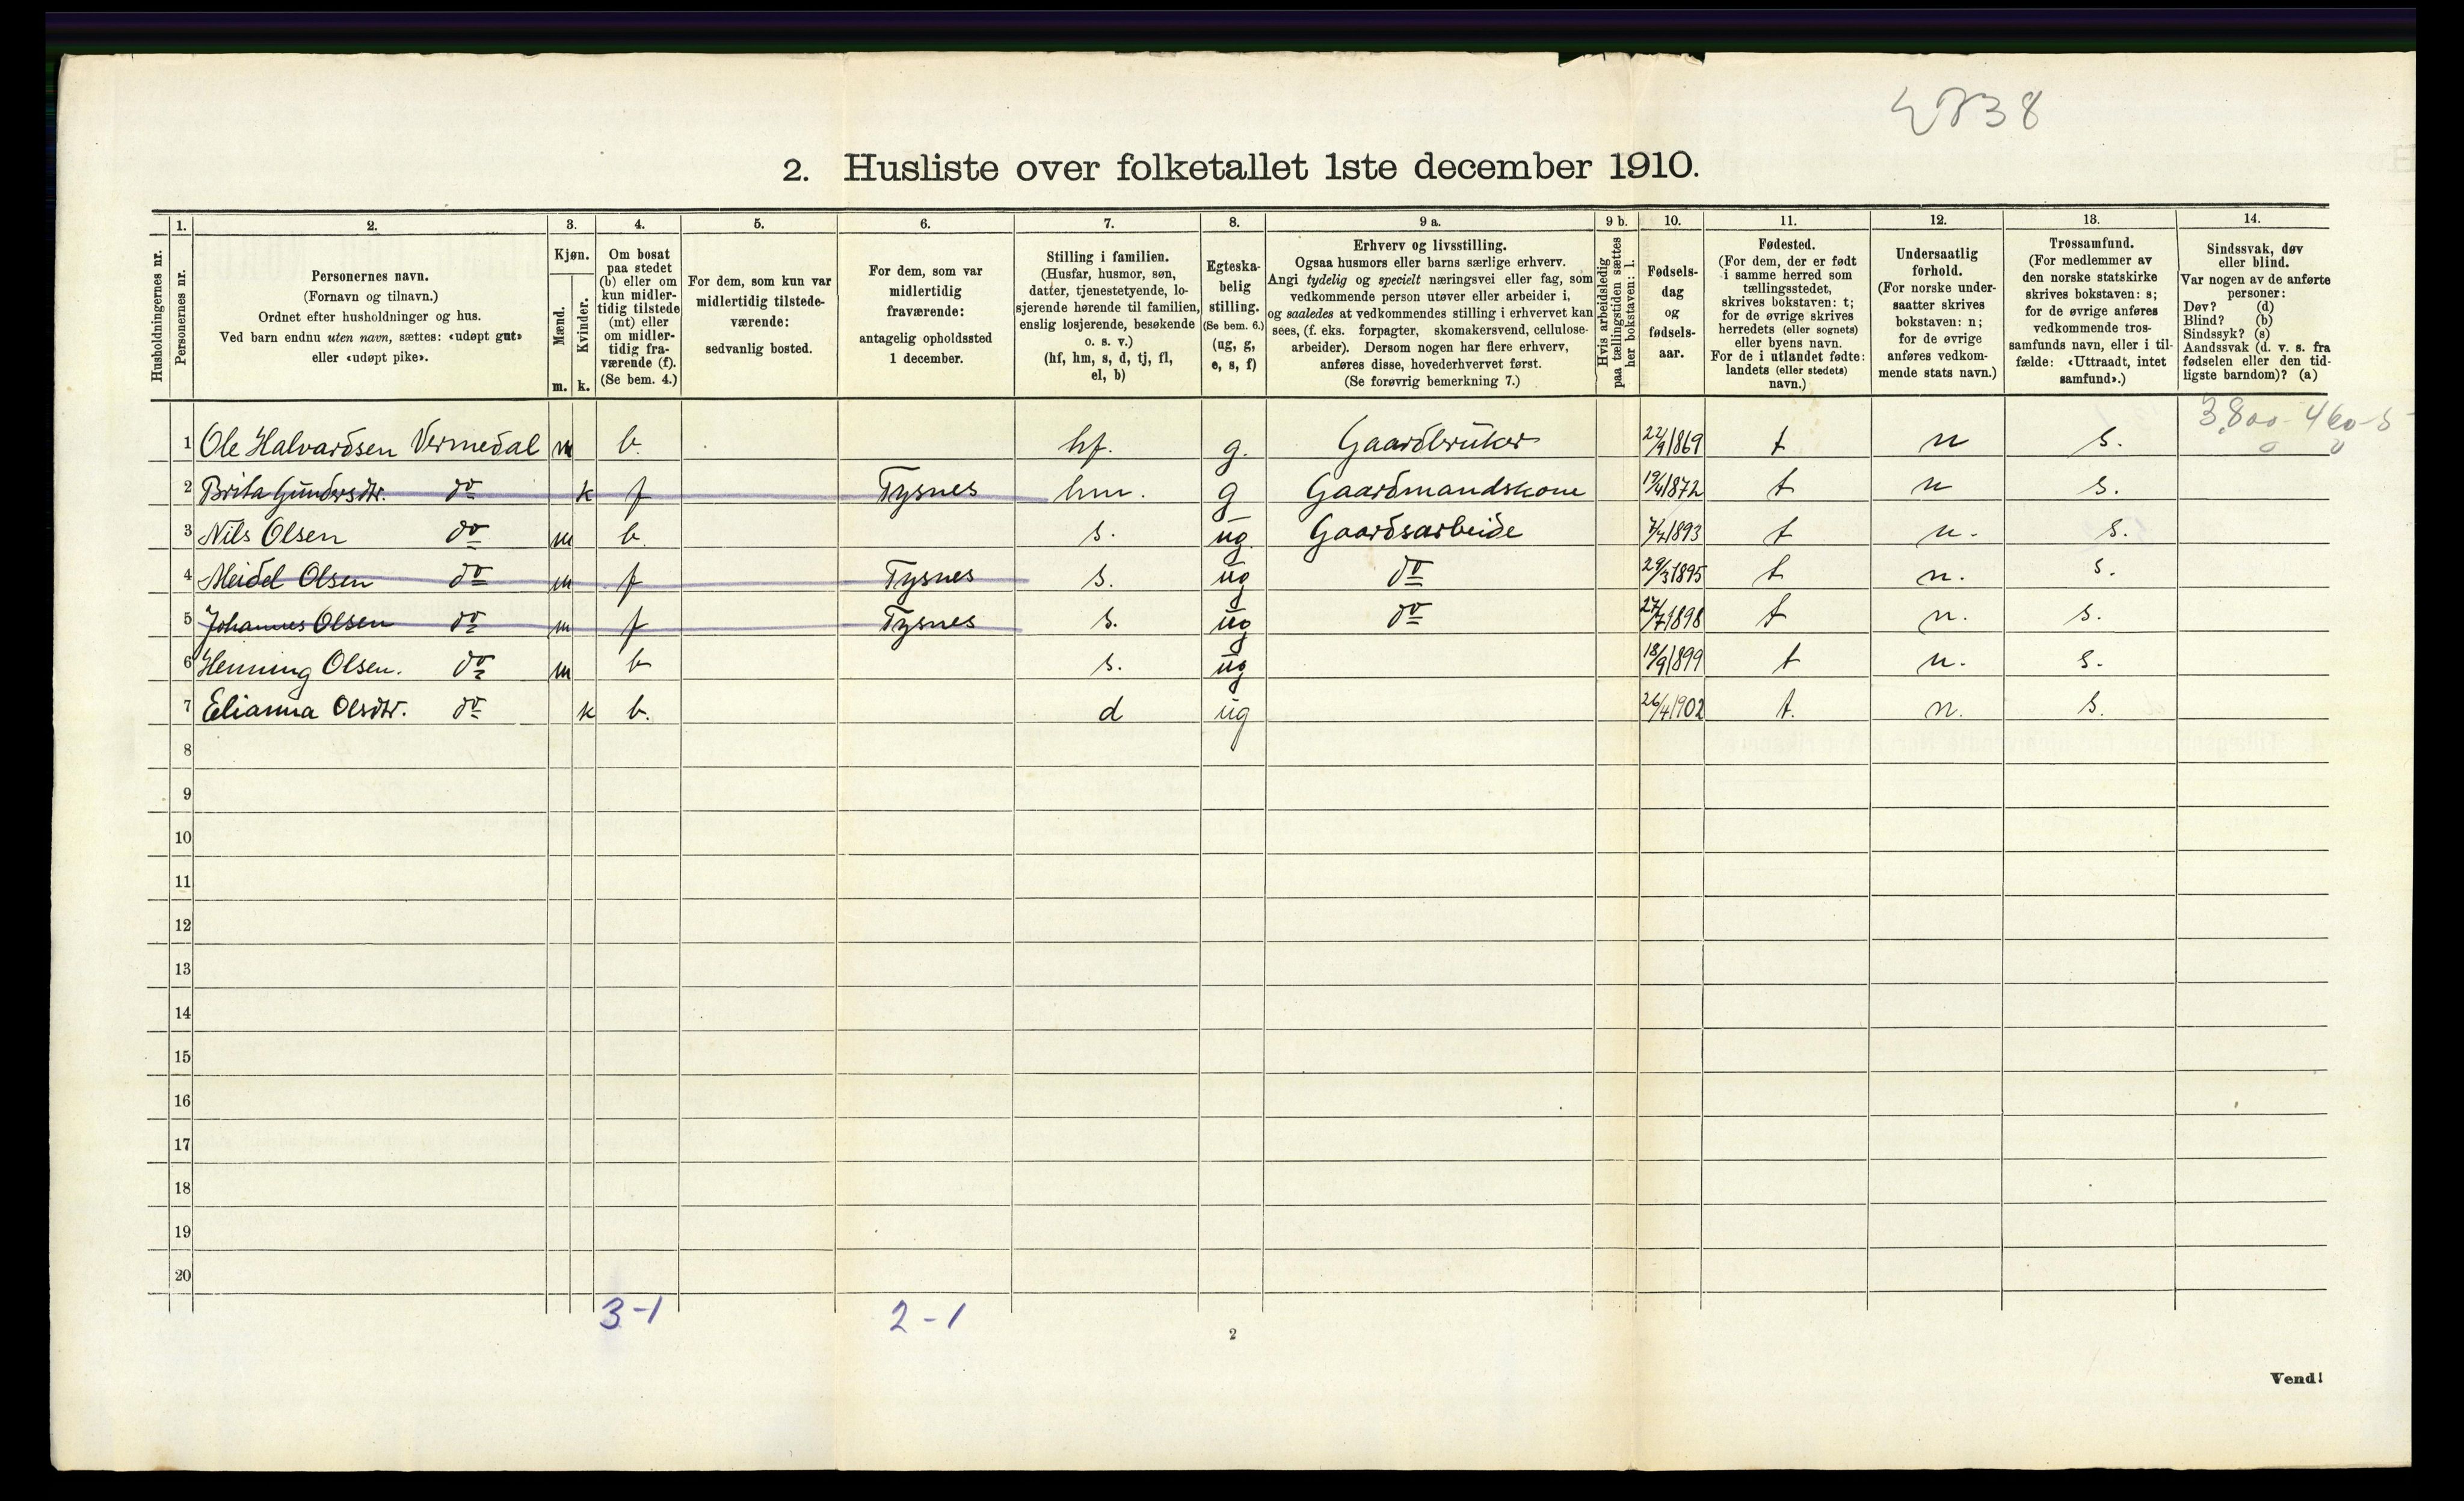 2838
2. Husliste over folketallet 1ste december 1910.
1. 2. 3. 4. 5. 6. 7. 8. 9 a. 9 b. 10. 11. 12. 13. 14.
Husholdningernes nr.
Personernes nr.
Personernes navn.
(Fornavn og tilnavn.)
Ordnet efter husholdninger og hus.
Ved barn endnu uten navn, sættes: «udøpt gut»
eller «udøpt pike».
Kjøn.
Mænd.
Kvinder.
m. k.
Om bosat
paa stedet
(b) eller om
kun midler-
tidig tilstede
(mt) eller
om midler-
tidig fra-
værende (f).
(Se bem. 4.)
For dem, som kun var
midlertidig tilstede-
værende:
sedvanlig bosted.
For dem, som var
midlertidig
fraværende:
antagelig opholdssted
1 december.
Stilling i familien.
(Husfar, husmor, søn,
datter, tjenestetyende, lo-
sjerende hørende til familien,
enslig losjerende, besøkende
o. s. v.)
(hf, hm, s, d, tj, fl,
el, b)
Egteska-
belig
stilling.
(Se bem. 6.)
(ug, g,
e, s, f)
Erhverv og livsstilling.
Ogsaa husmors eller barns særlige erhverv.
Angi tydelig og specielt næringsvei eller fag, som
vedkommende person utøver eller arbeider i,
og saaledes at vedkommendes stilling i erhvervet kan
sees, (f. eks. forpagter, skomakersvend, cellulose-
arbeider). Dersom nogen har flere erhverv,
anføres disse, hovederhvervet først.
(Se forøvrig bemerkning 7.)
Hvis arbeidsledig
paa tællingstiden sættes
her bokstaven: l.
Fødsels-
dag
og
fødsels-
aar.
Fødested.
(For dem, der er født
i samme herred som
tællingsstedet,
skrives bokstaven: t;
for de øvrige skrives
herredets (eller sognets)
eller byens navn.
For de i utlandet fødte:
landets (eller stedets)
navn.)
Undersaatlig
forhold.
(For norske under-
saatter skrives
bokstaven: n;
for de øvrige
anføres vedkom-
mende stats navn.)
Trossamfund.
(For medlemmer av
den norske statskirke
skrives bokstaven: s;
for de øvrige anføres
vedkommende tros-
samfunds navn, eller i til-
fælde: «Uttraadt, intet
samfund».)
Sindssvak, døv
eller blind.
Var nogen av de anførte
personer:
Døv? (d)
Blind? (b)
Sindssyk? (s)
Aandssvak (d. v. s. fra
fødselen eller den tid-
ligste barndom)? (a)
3,800 - 460 - 5
0 0
1 Ole Halvardsen Vermedal m b. hf. g. Gaardbruker 22/9 1869 t n s.
2 Brita Gundersdtr. do k f Tysnes hm. g Gaardmandskone 19/4 1872 t n s.
3 Nils Olsen do m b. s. ug. Gaardsarbeide 7/7 1893 t n. s.
4 Meidel Olsen do m f Tysnes s. ug do 29/3 1895 t n. s.
5 Johannes Olsen do m f Tysnes s. ug do 27/7 1898 t n. s.
6 Henning Olsen. do m b s. ug 18/9 1899 t n. s.
7 Elianna Olsdtr. do k b. d ug 26/4 1902 t. n. s.
8
9
10
11
12
13
14
15
16
17
18
19
20
3-1 2-1
2
Vend!